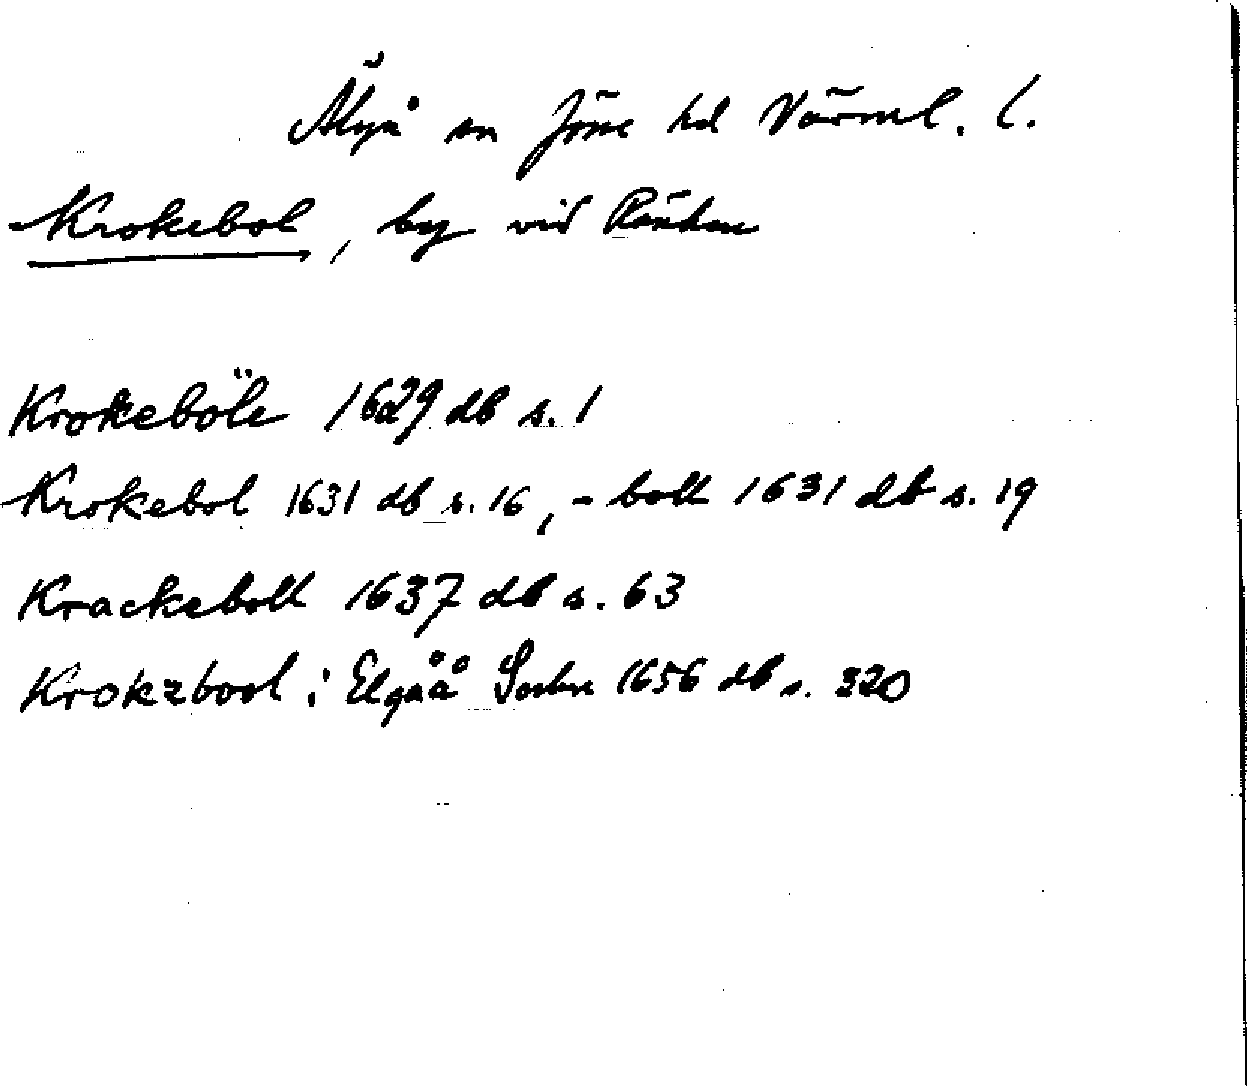 Älgå sn Jösse hd Värml. l.
Krokebol, by vid
Krokeböle 1629 db s. 1
Krokebol 1631 db s. 16, - boll 1631 db s. 19
Krackeboll 1637 db s. 63
Krokzbool i Elgåå Sochn 1656 db s. 220